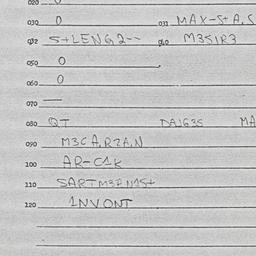 020
030 0 031 MAX-S+A,S
032 S+LENG2-- 010 M3S1R3
050 0
060 0
070 —
080 QT DA1G3S MA
090 M3CA,RZA,N
100 AR-C1K
110 SARTM37N15+
120 1NVONT